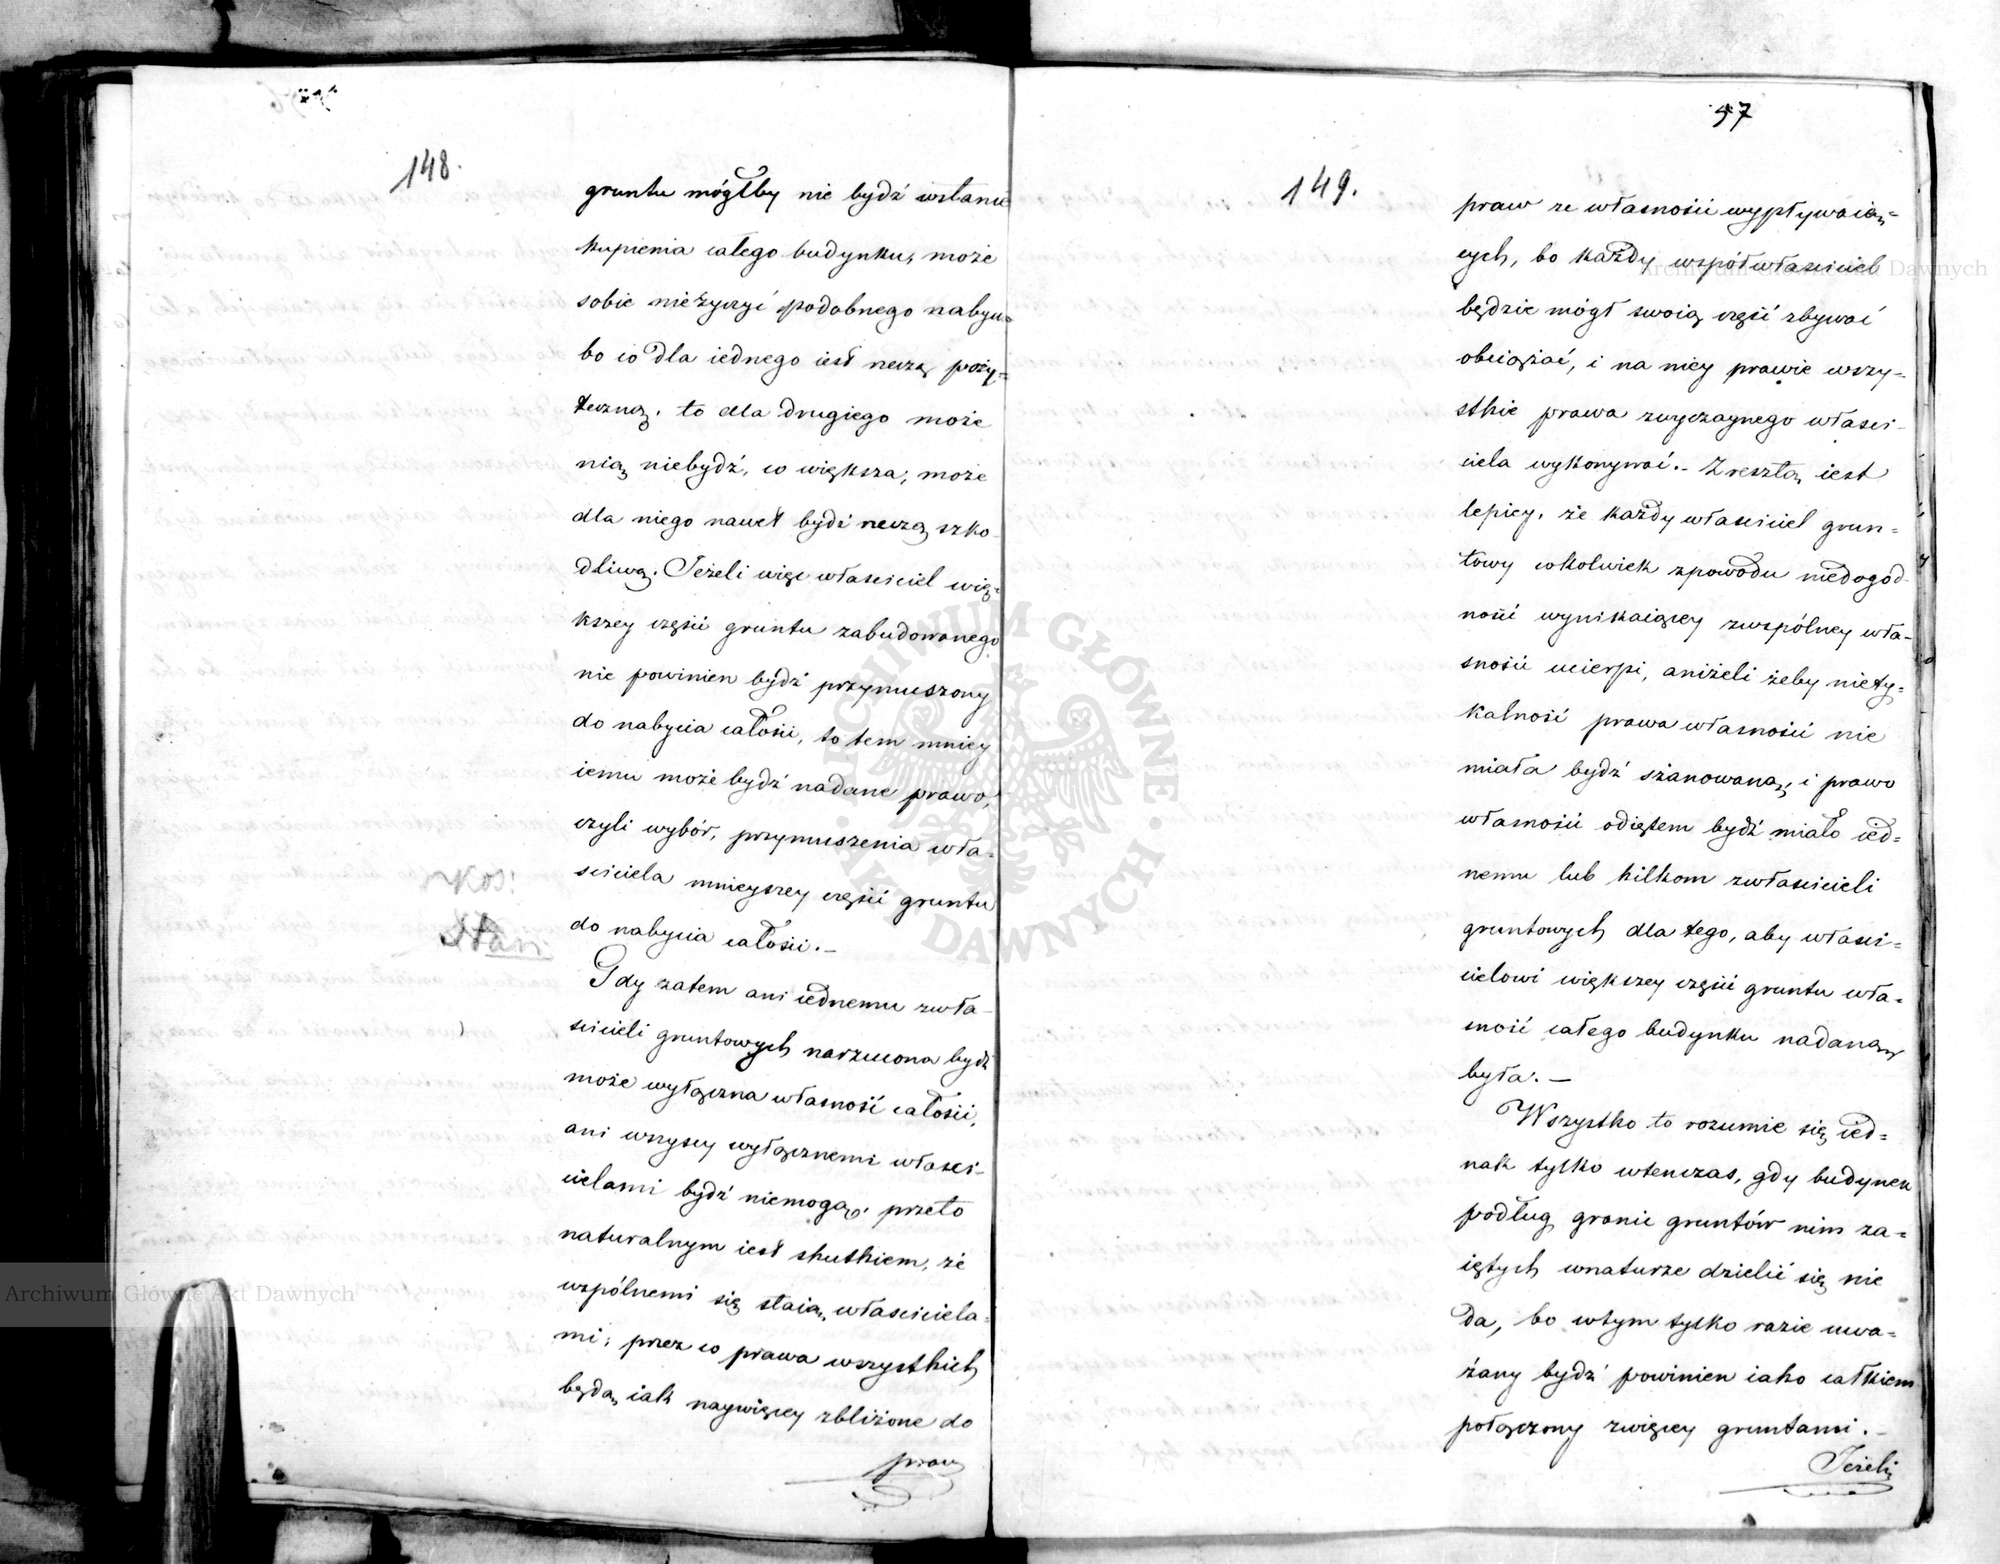 148.
gruntu mógłby nie bydź wstanie
kupienia całego budynku, może
sobie nieżyczyć podobnego nabyci=
bo co dla iednego iest rzeczą poży=
teczną, to dla drugiego może
nią niebydź, co większa, może
dla niego nawet bydź rzeczą szko-
dliwą. Jeżeli więc właściciel wię=
kszey części gruntu zabudowanego
nie powinien bydź przymuszony
do nabycia całości, to tem mniey
iemu może bydź nadane prawo,
czyli wybór, przymuszenia wła=
ściciela mnieyszey części gruntu
do nabycia całości.–
Gdy zatem ani iednemu zwła-
ścicieli gruntowych narzucona bydź
może wyłączna własność całości,
ani wszyscy wyłącznemi właści-
cielami bydź niemogą, przeto
naturalnym iest skutkiem, że
wspólnemi się staią właściciela=
mi, przez co prawa wszystkich
będą iak naywięcey zbliżone do
praw
57
149.
praw ze własności wypływaią=
cych, bo każdy współwłaściciel
będzie mógł swoią część zbywać
obciążać, i na niey prawie wszy=
stkie prawa zwyczaynego właści-
ciela wykonywać.– Zresztą iest
lepiey, że każdy właściciel grun=
towy cokolwiek zpowodu niedogod-
ności wynikaiącey zwspólney wła-
sności ucierpi, aniżeli żeby niety=
kalność prawa własności nie
miała bydź szanowaną, i prawo
własności odiętem bydź miało ied=
nemu lub kilkom zwłaścicieli
gruntowych dla tego, aby właści=
cielowi większey części gruntu wła=
sność całego budynku nadaną
była.–
Wszystko to rozumie się ied=
nak tylko wtenczas, gdy budynek
podług granic gruntów nim za=
iętych wnaturze dzielić się nie
da, bo wtym tylko razie uwa=
żany bydź powinien iako całkiem
połączony zwięcey gruntami.–
Jeżeli
Archiwum Główne Akt Dawnych
Archiwum Główne Akt Dawnych
ARCHIWUM GŁÓWNE AKT DAWNYCH